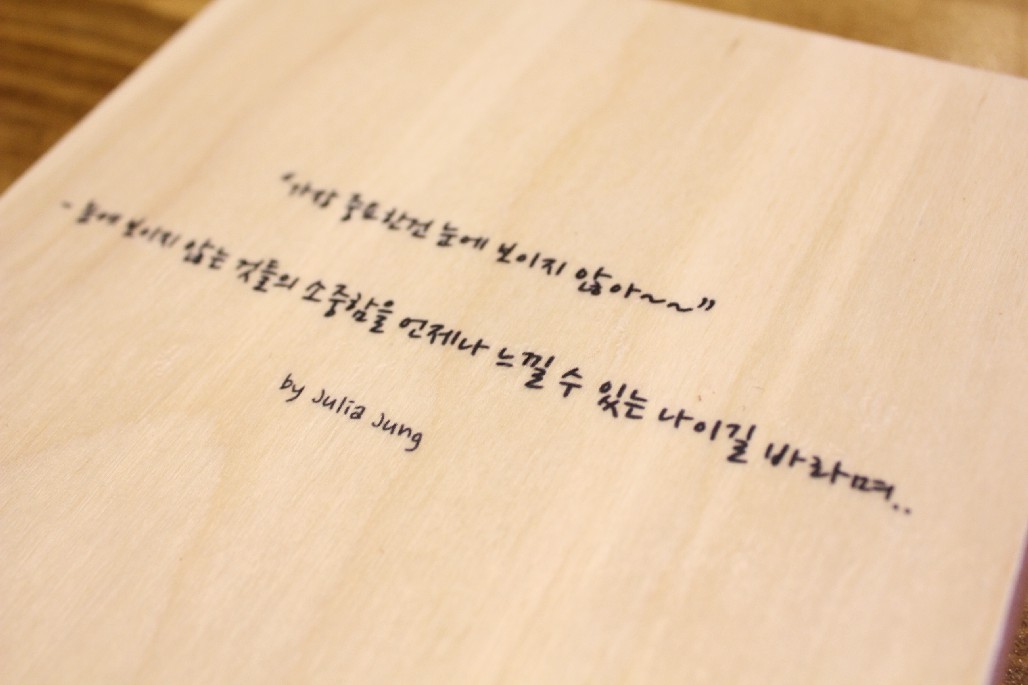 "가장 중요한건 눈에 보이지 않아~~"
- 눈에 보이지 않는 것들의 소중함을 언제나 느낄 수 있는 나이길 바라며..
by Julia Jung